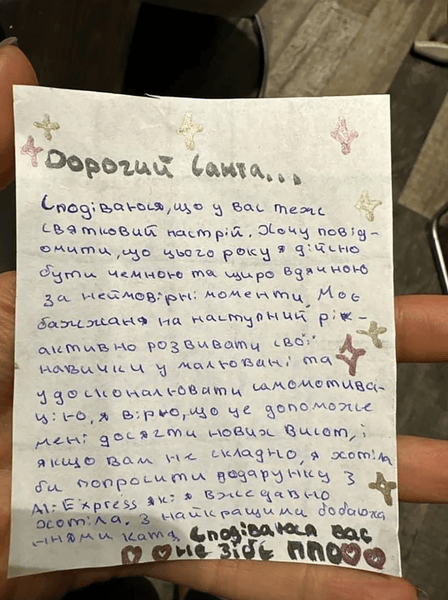 Дорогий Санта...
Сподіваюся, що у вас теж
святковий настрій. Хочу повід-
омити, що цього року я дійсно
бути чемною та щиро вдячною
за неймовірні моменти. Моє
бажжаня на наступний рік -
активно розвивати свої
навички у малювані та
удосконалювати самомотива-
цію, я вірю, що це допоможе
мені досягти нових висот, і
якщо вам не складно, я хотіла
би попросити подарунку з
Ali Express які я вже давно
хотіла. З найкращими побажа
ннями Катя, Сподіваюся вас
не зібє ППО